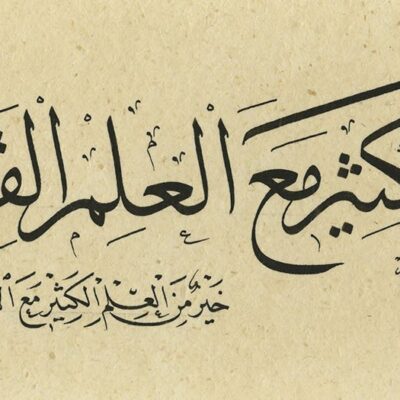 كثير مَعَ الْعِلْمِ الْق
خَيْرٌ مِنَ الْعِلْمِ الْكَثِيْرِ مَعَ ال